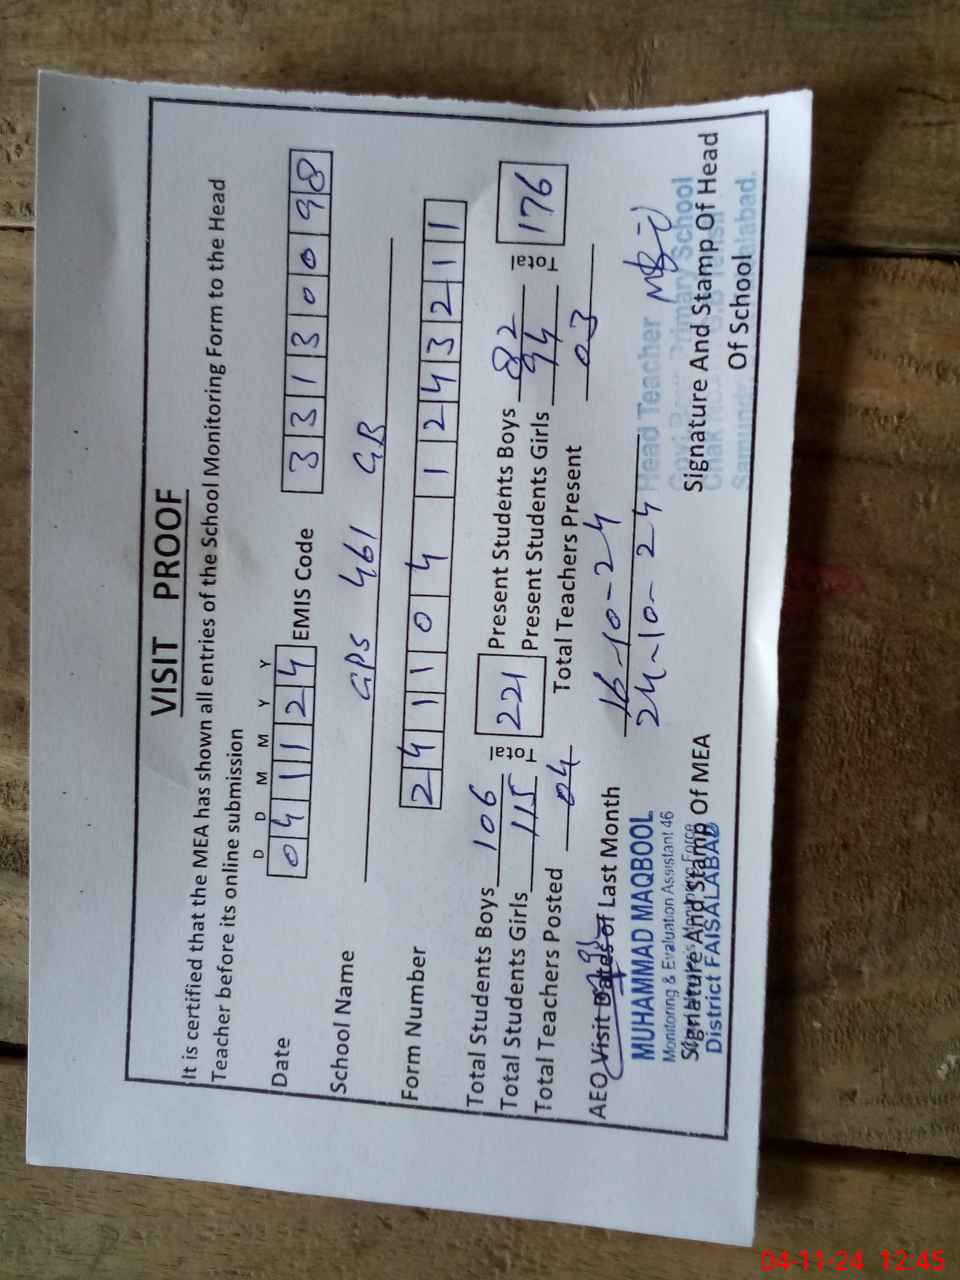 VISIT PROOF
It is certified that the MEA has shown all entries of the School Monitoring Form to the Head
Teacher before its online submission
D D M M Y Y
Date 041124 EMIS Code 33130098
School Name GPS 461 GB
Form Number 241104 1243211
Total Students Boys 106 Total 221 Present Students Boys 82 Total 176
Total Students Girls 115 Present Students Girls 94
Total Teachers Posted 04 Total Teachers Present 03
AEO Visit Dates of Last Month 16-10-24
24-10-24
MUHAMMAD MAQBOOL
Monitoring & Evaluation Assistant 46
Signature And Stamp Of MEA
District FAISALABAD
Head Teacher
Primary School
Signature And Stamp Of Head
Of School
04-11-24 12:45